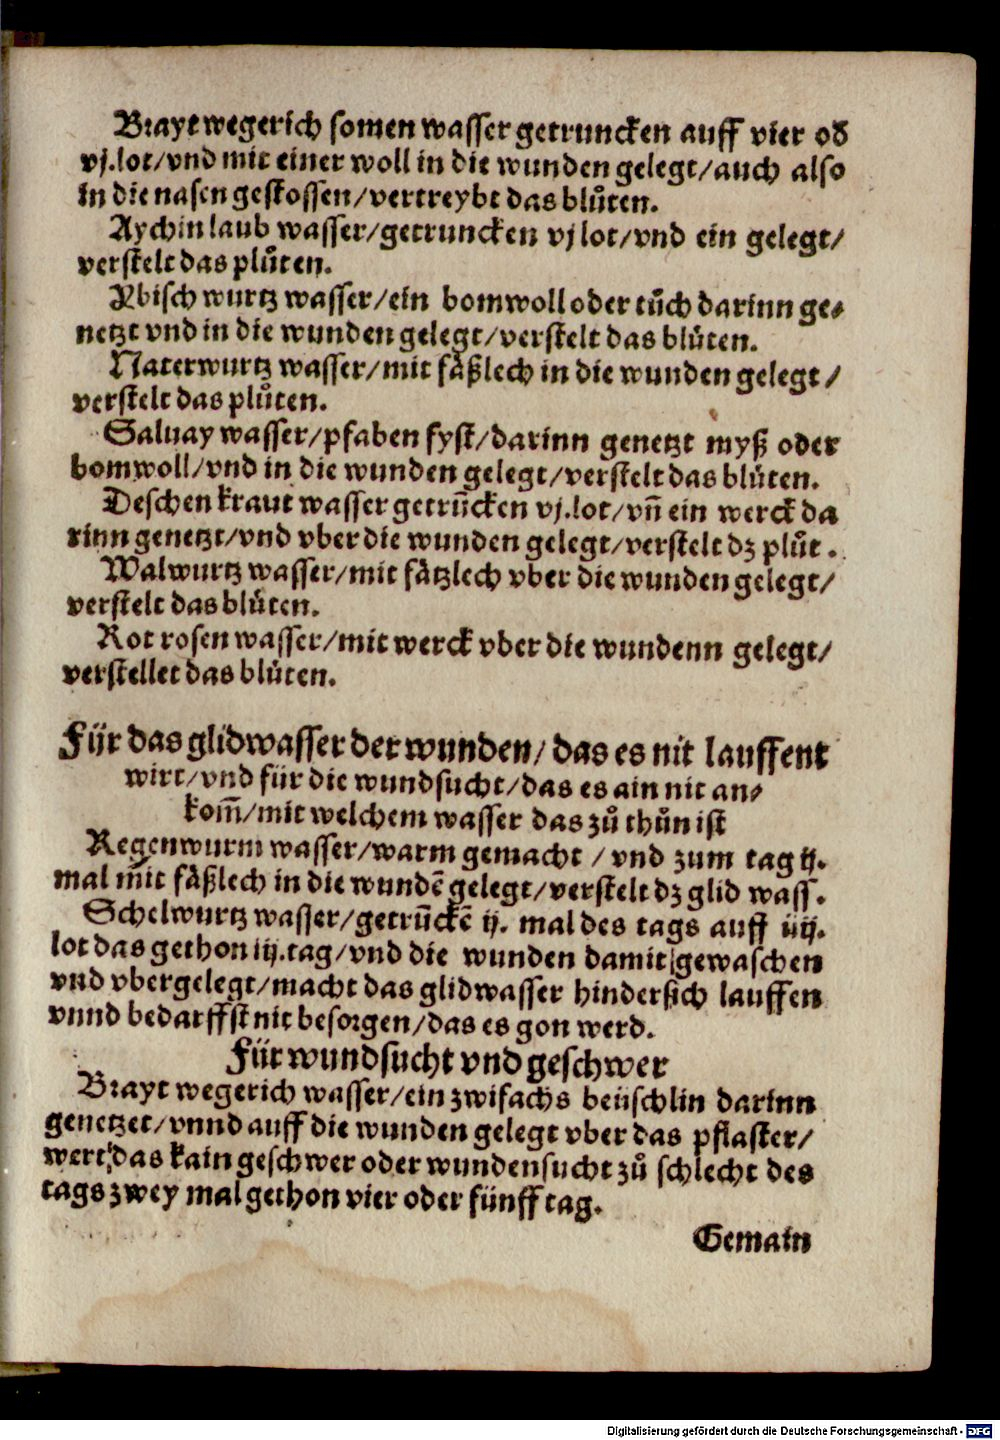 Brayt wegerich somen wasser getruncken auff vier od
vj.lot/vnd mit einer woll in die wunden gelegt/auch also
in die nasen gestossen/vertreybt das blůten.
Aychin laub wasser/getruncken vj lot/vnd ein gelegt/
verstelt das plůten.
Ybisch wurtz wasser/ein bomwoll oder tůch darinn ge⸗
netzt vnd in die wunden gelegt/verstelt das blůten.
Naterwurtz wasser/mit fåßlech in die wunden gelegt/
verstelt das plůten.
Saluay wasser/pfaben fyst/darinn genetzt myß oder
bomwoll/vnd in die wunden gelegt/verstelt das blůten.
Deschen kraut wasser getrūcken vj.lot/vn̄ ein werck da
rinn genetzt/vnd vber die wunden gelegt/verstelt dz plůt.
Walwurtz wasser/mit fåtzlech vber die wunden gelegt/
verstelt das blůten.
Rot rosen wasser/mit werck vber die wundenn gelegt/
verstellet das blůten.
Für das glidwasser der wunden/das es nit lauffent
wirt/vnd für die wundsucht/das es ain nit an⸗
kom̄/mit welchem wasser das zů thůn ist
Regenwurm wasser/warm gemacht/vnd zum tag ij.
mal mit fåßlech in die wundē gelegt/verstelt dz glid wass.
Schelwurtz wasser/getrūckē ij. mal des tags auff iiij.
lot das gethon iij.tag/vnd die wunden damit gewaschen
vnd vbergelegt/macht das glidwasser hindersich lauffen
vnnd bedarffst nit besorgen/das es gon werd.
Für wundsucht vnd geschwer
Brayt wegerich wasser/ein zwifachs beüschlin darinn
genetzet/vnnd auff die wunden gelegt vber das pflaster/
wert das kain geschwer oder wundensucht zů schlecht des
tags zwey mal gethon vier oder fünff tag.
Gemain
Digitalisierung gefördert durch die Deutsche Forschungsgemeinschaft - DFG